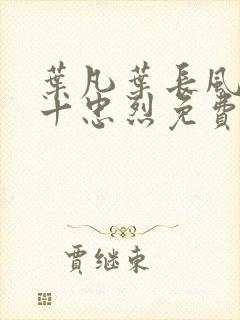 葉凡葉長風
十忠烈免費
賈继東